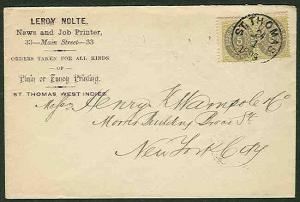 LEROY NOLTE,
News and Job Printer,
33—Main Street—33
ORDERS TAKEN FOR ALL KINDS
—OF—
Plain or Fancy Printing.
ST THOMAS WEST INDIES
ST. THOMAS
Messrs Henry K Wampole & Co
Morris Building Broad St
New York City